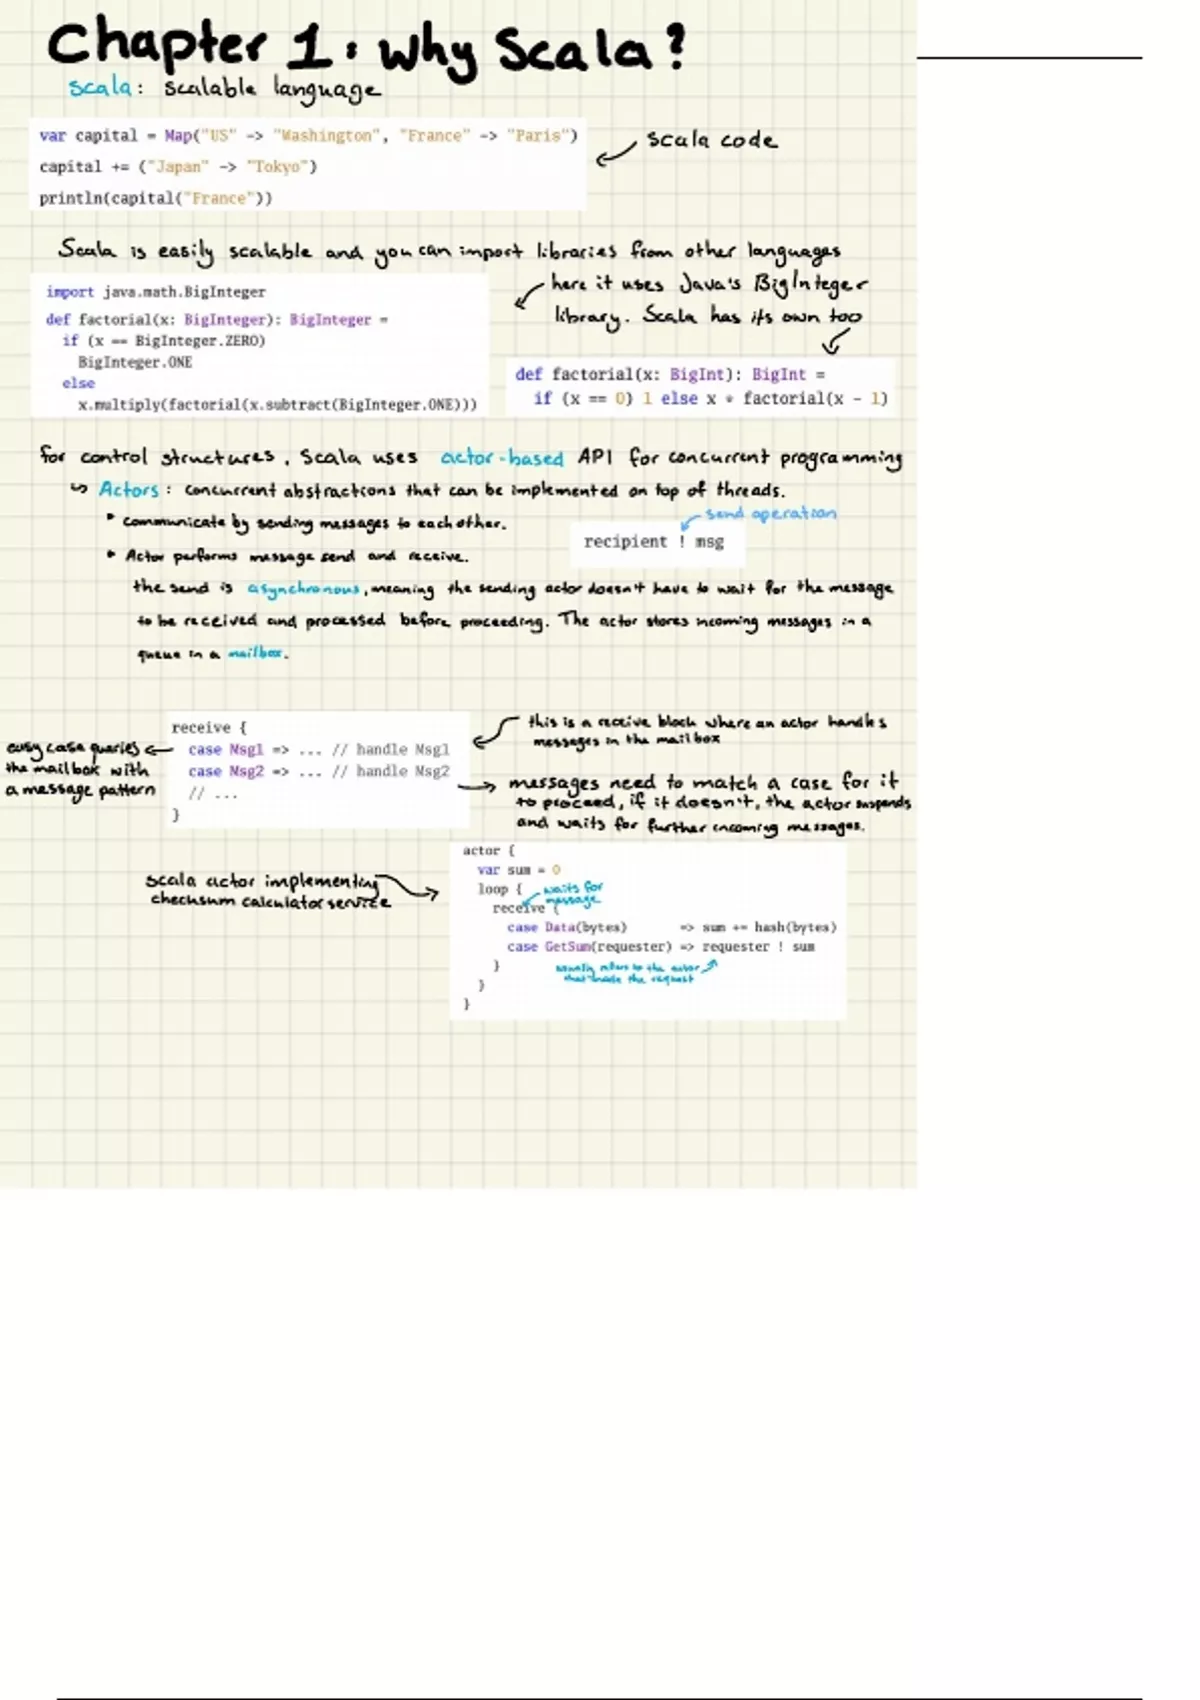 Chapter 1: Why Scala?
scala: scalable language
var capital = Map("US" -> "Washington", "France" -> "Paris")
capital += ("Japan" -> "Tokyo")
println(capital("France"))
scala code
Scala is easily scalable and you can import libraries from other languages
import java.math.BigInteger
def factorial(x: BigInteger): BigInteger =
if (x == BigInteger.ZERO)
BigInteger.ONE
else
x.multiply(factorial(x.subtract(BigInteger.ONE)))
here it uses Java's BigInteger
library. Scala has its own too
def factorial(x: BigInt): BigInt =
if (x == 0) 1 else x * factorial(x - 1)
for control structures, Scala uses actor-based API for concurrent programming
↳ Actors: concurrent abstractions that can be implemented on top of threads.
• communicate by sending messages to each other.
send operation
recipient ! msg
• Actor performs message send and receive.
the send is asynchronous, meaning the sending actor doesn't have to wait for the message
to be received and processed before proceeding. The actor stores incoming messages in a
queue in a mailbox.
receive {
case Msg1 => ... // handle Msg1
case Msg2 => ... // handle Msg2
// ...
}
easy case queries
the mailbox with
a message pattern
this is a receive block where an actor handles
messages in the mailbox
messages need to match a case for it
to proceed, if it doesn't, the actor suspends
and waits for further incoming messages.
scala actor implementing
checksum calculator service
actor {
var sum = 0
loop {
waits for
message
receive {
case Data(bytes) => sum += hash(bytes)
case GetSum(requester) => requester ! sum
}
usually refers to the actor
that made the request
}
}